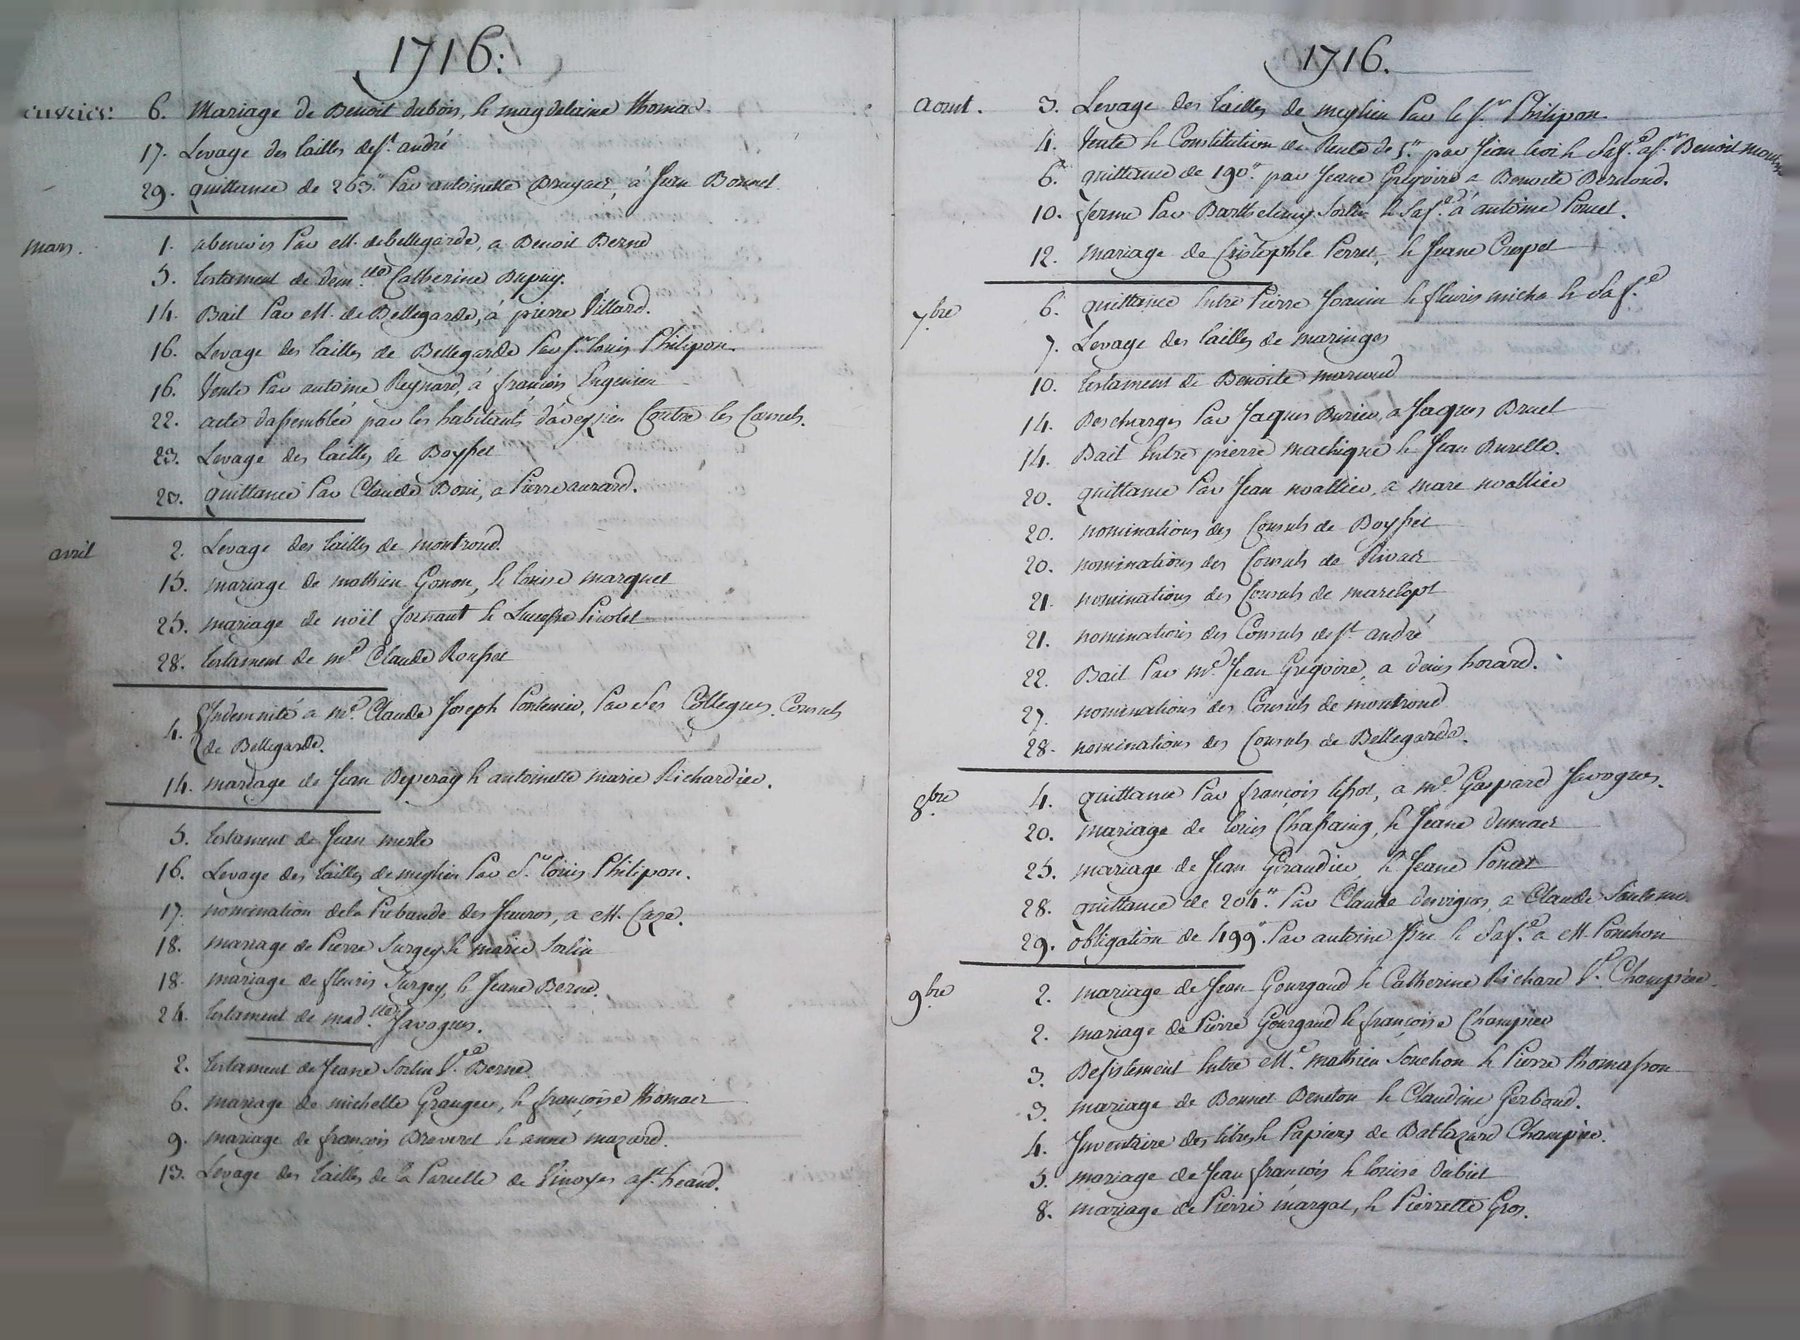 1716:
6. Mariage de Benoit dubois, & magdelaine thomas
17. Levage des tailles de St. andré
29. quittance de 263# Par antoinette Bruyas, à Jean Bonnet
mars. 1. abenevis Par M. de bellegarde, a Benoit Berne
5. testament de dem.lle Catherine Dupuy.
14. Bail Par M. de Bellegarde, à pierre Villard.
16. Levage des tailles de Bellegarde Par Sr. louis Philipon.
16. Vente Par antoine Reynard, à françois
22. acte dassemblée par les habitants daveyzieu Contre les Consuls.
23. Levage des tailles de Boysset
20. quittance Par Claude Bori, a Pierre
avril 2. Levage des tailles de montrond.
15. mariage de mathieu Gonon, & louise marquet
25. mariage de noël fornant & Picolet
28. testament de me Claude Rousset
4. Indemnité a me. Claude Joseph Pontenier, Par ses Collegues Consuls
de Bellegarde.
14. mariage de Jean Deperay & antoinette marie Richardier.
5. testament de Jean merle
16. Levage des tailles de meylieu Par Sr. louis Philipon.
17. nomination dela Prebande des Javros, a M. Caze.
18. mariage de Pierre Surgey & marie Sortin
18. mariage de fleuris Surgey, & Jeane Berne.
24. testament de mad.lle Javogues.
2. testament de Jeane Sortin Ve. Berne.
6. mariage de michelle Granger, & françoise thomas
9. mariage de françois Breveret & anne mazard.
13. Levage des tailles de la Parcelle de
1716.
aout. 3. Levage des tailles de meylieu Par le Sr. Philipon.
4. Vente & Constitution de Rente de 5# par Jean & Sa fe. a Sr. Benoit
6. quittance de 190# par Jeane Gregoire a Benoite Bernond.
10. ferme Par Barthelemy Sortin & Sa fe. à antoine Poncet.
12. mariage de Cristophle Perret, & Jeane Crepet
7.bre 6. quittance Entre Pierre Joanin & fleuris micha & Sa fe.
7. Levage des tailles de maringes
10. testament de Benoite
14. Descharges Par Jaques Burieu, a Jaques Bruel
14. Bail Entre pierre machiqué & Jean Burelle.
20. quittance Par Jean noallier, a marc noallier
20. nominations des Consuls de Boysset
20. nominations des Consuls de Rivas
21. nominations des Consuls de marclopt
21. nominations des Consuls de St. andré
22. Bail Par me. Jean Gregoire, a denis
27. nominations des Consuls de montrond
28. nominations des Consuls de Bellegarde.
8.bre 4. quittance Par françois a me. Gaspard Javogues.
20. mariage de louis Chassaing, & Jeane dumas
25. mariage de Jean Giraudier & Jeane Ponat
28. quittance de 204# Par Claude desvignes, a Claude
29. obligation de 499# Par antoine & Sa fe. a M. Ponchon
9.bre 2. mariage de Jean Gourgaud & Catherine Richard Ve. Champier.
2. mariage de Pierre Gourgaud & françoise Champier
3. Desistement Entre Me. mathieu Souchon & Pierre thomasson
3. mariage de Bonnet Beneton & Claudine Gerbaud.
4. Inventaire des titres & Papiers de Baltazard Champier.
5. mariage de Jean françois & louise dubiet
8. mariage de Pierre margat, & Pierrette Gros.